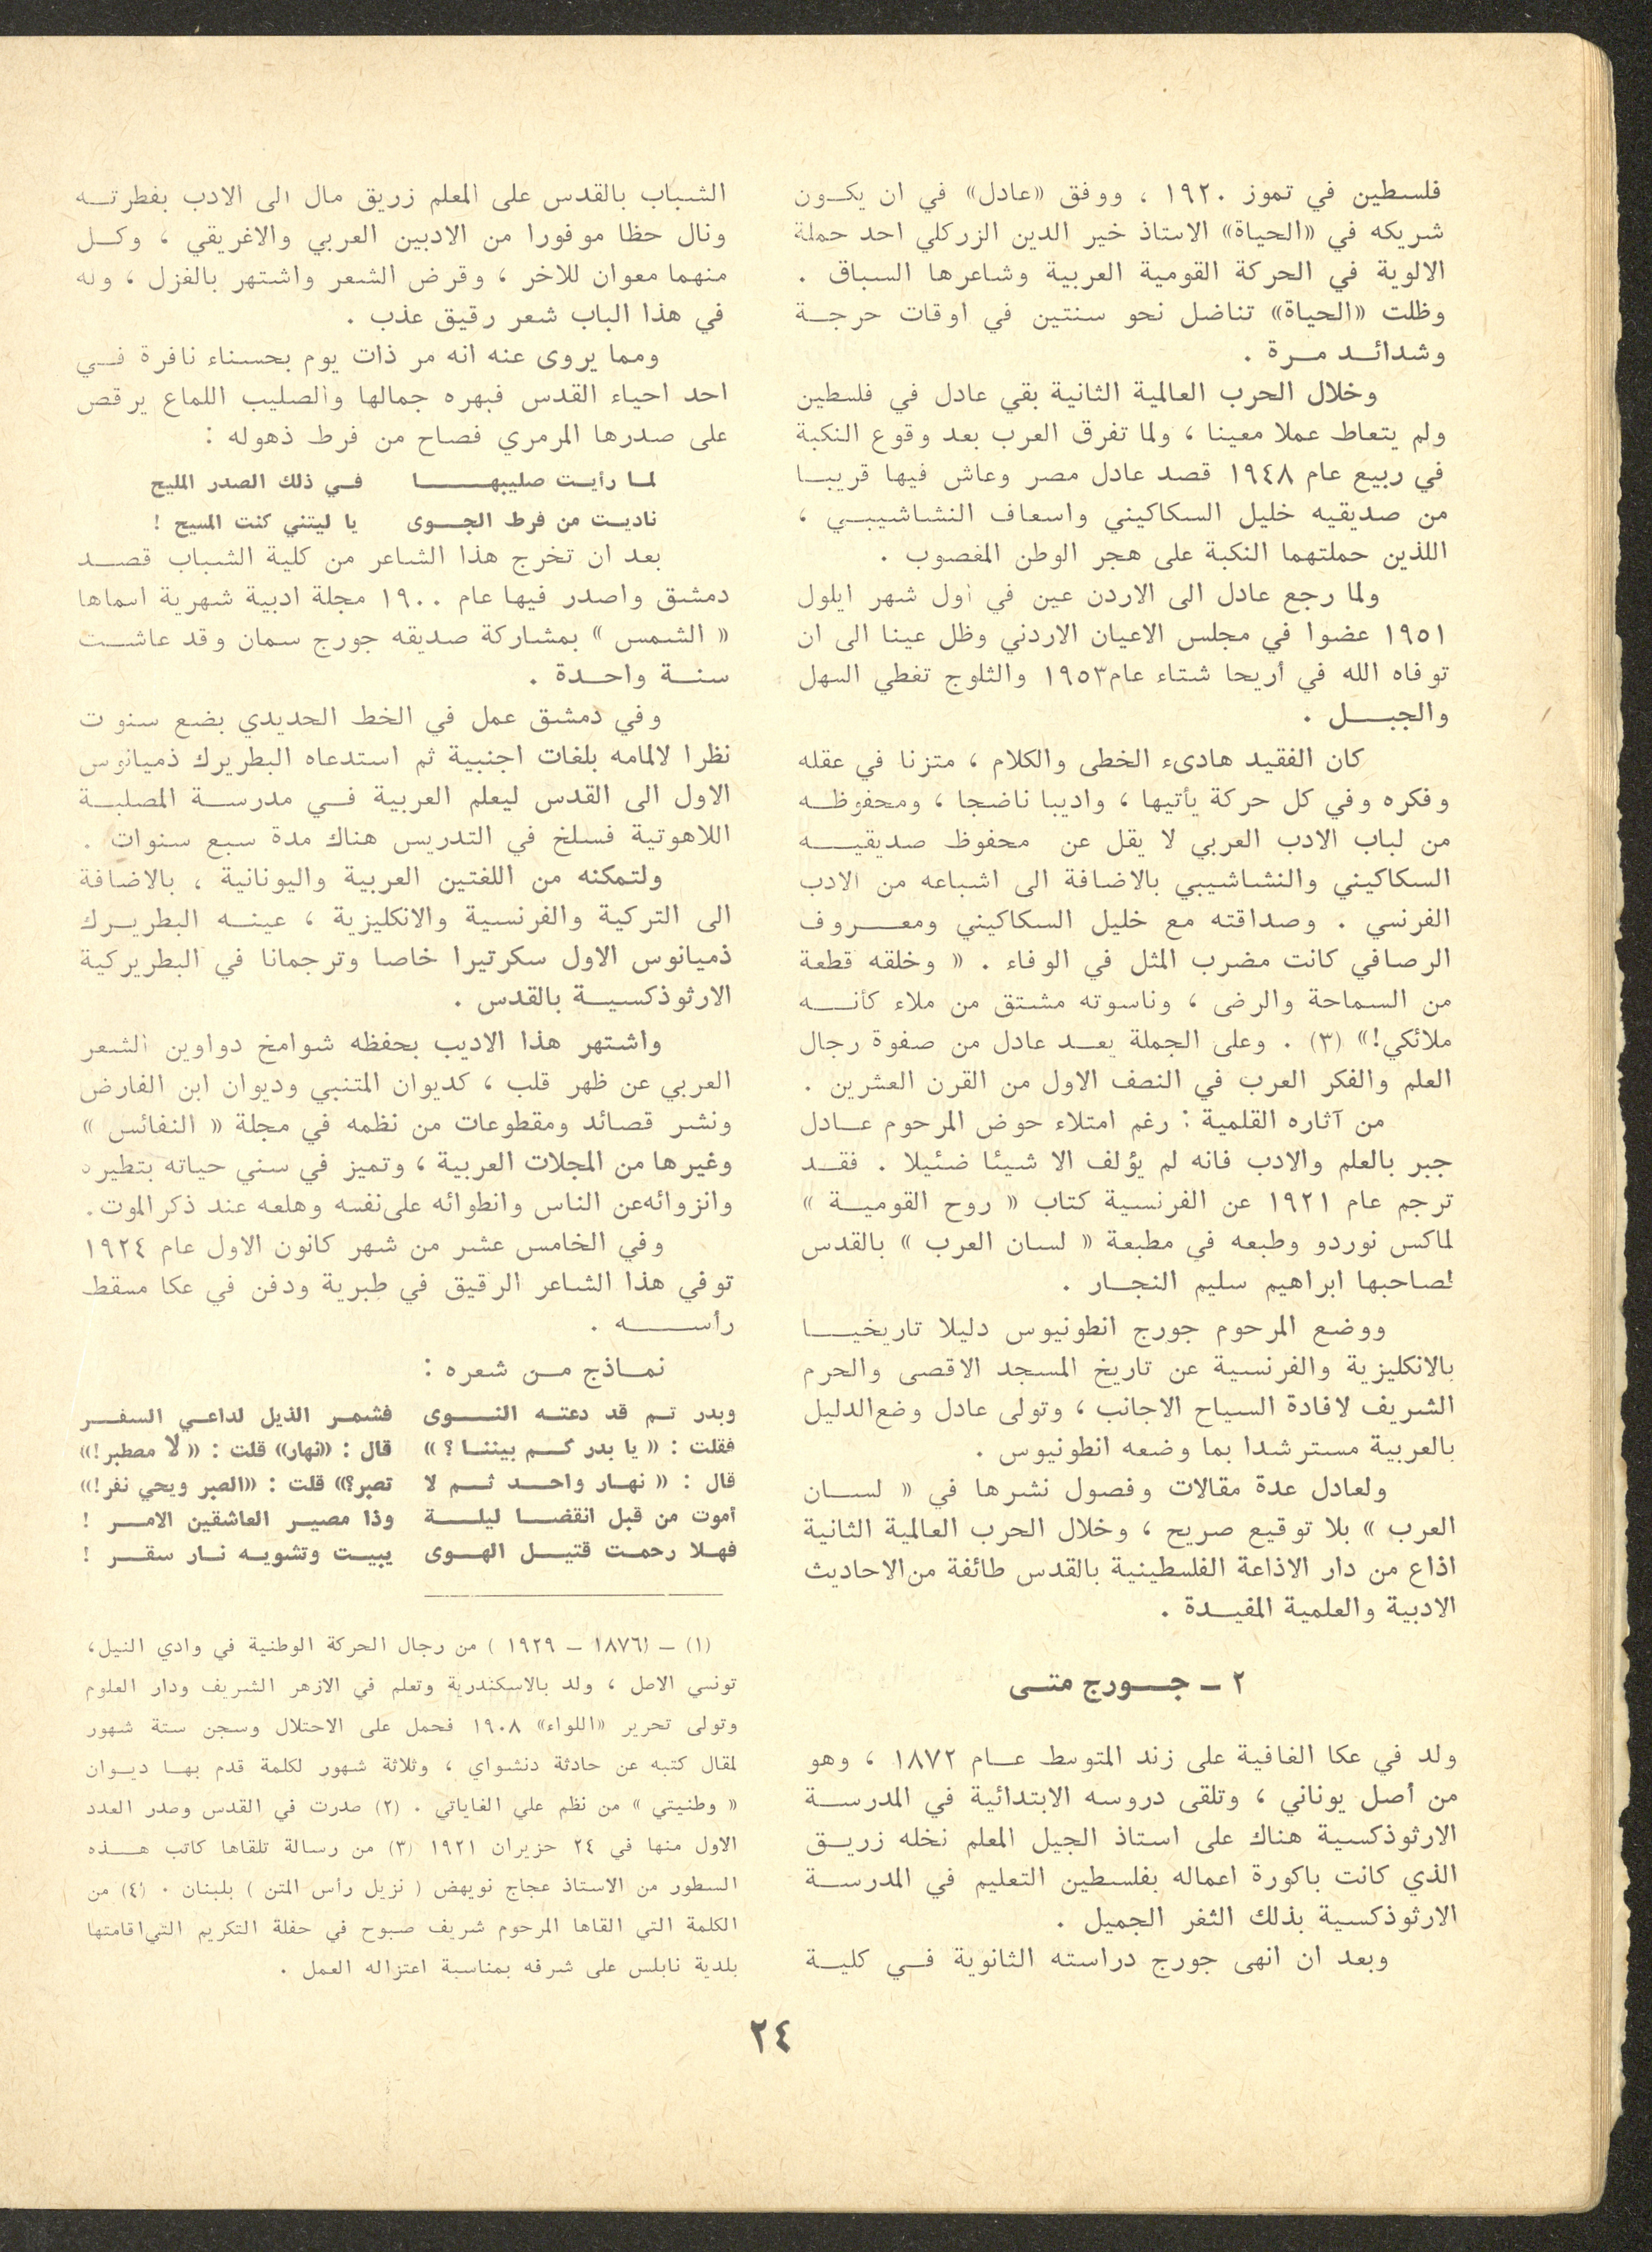 فلسطين في تموز ١٩٢٠ ، ووفق «عادل» في ان يكون
شريكه في «الحياة» الاستاذ خير الدين الزركلي احد حملة
الالوية في الحركة القومية العربية وشاعرها السباق .
وظلت «الحياة» تناضل نحو سنتين في اوقات حرجة
وشدائد مرة .
وخلال الحرب العالمية الثانية بقي عادل في فلسطين
ولم يتعاط عملا معينا ، ولما تفرق العرب بعد وقوع النكبة
في ربيع عام ١٩٤٨ قصد عادل مصر وعاش فيها قريبا
من صديقيه خليل السكاكيني واسعاف النشاشيبي ،
اللذين حملتهما النكبة على هجر الوطن المغصوب .
ولما رجع عادل الى الاردن عين في أول شهر ايلول
١٩٥١ عضوا في مجلس الاعيان الاردني وظل عينا الى ان
توفاه الله في أريحا شتاء عام ١٩٥٣ والثلوج تغطي السهل
والجبل .
كان الفقيد هادىء الخطى والكلام ، متزنا في عقله
وفكره وفي كل حركة يأتيها ، واديبا ناضجا ، ومحفوظه
من لباب الادب العربي لا يقل عن محفوظ صديقيه
السكاكيني والنشاشيبي بالاضافة الى اشباعه من الادب
الفرنسي . وصداقته مع خليل السكاكيني ومعروف
الرصافي كانت مضرب المثل في الوفاء . « وخلقه قطعة
من السماحة والرضى ، وناسوته مشتق من ملاء كأنه
ملائكي!» (٣) . وعلى الجملة يعد عادل من صفوة رجال
العلم والفكر العرب في النصف الاول من القرن العشرين .
من آثاره القلمية : رغم امتلاء حوض المرحوم عادل
جبر بالعلم والادب فانه لم يؤلف الا شيئا ضئيلا . فقد
ترجم عام ١٩٢١ عن الفرنسية كتاب « روح القومية »
لماكس نوردو وطبعه في مطبعة « لسان العرب » بالقدس
لصاحبها ابراهيم سليم النجار .
ووضع المرحوم جورج انطونيوس دليلا تاريخيا
بالانكليزية والفرنسية عن تاريخ المسجد الاقصى والحرم
الشريف لافادة السياح الاجانب ، وتولى عادل وضع الدليل
بالعربية مسترشدا بما وضعه انطونيوس .
ولعادل عدة مقالات وفصول نشرها في « لسان
العرب » بلا توقيع صريح ، وخلال الحرب العالمية الثانية
اذاع من دار الاذاعة الفلسطينية بالقدس طائفة من الاحاديث
الادبية والعلمية المفيدة .
٢ ـ جورج متى
ولد في عكا الغافية على زند المتوسط عام ١٨٧٢ ، وهو
من أصل يوناني ، وتلقى دروسه الابتدائية في المدرسة
الارثوذكسية هناك على استاذ الجيل المعلم نخله زريق
الذي كانت باكورة اعماله بفلسطين التعليم في المدرسة
الارثوذكسية بذلك الثغر الجميل .
وبعد ان انهى جورج دراسته الثانوية في كلية
الشباب بالقدس على المعلم زريق مال الى الادب بفطرته
ونال حظا موفورا من الادبين العربي والاغريقي ، وكل
منهما معوان للاخر ، وقرض الشعر واشتهر بالغزل ، وله
في هذا الباب شعر رقيق عذب .
ومما يروى عنه انه مر ذات يوم بحسناء نافرة في
احد احياء القدس فبهره جمالها والصليب اللماع يرقص
على صدرها المرمري فصاح من فرط ذهوله :
لما رأيت صليبها في ذلك الصدر المليح
ناديت من فرط الجوى يا ليتني كنت المسيح !
بعد ان تخرج هذا الشاعر من كلية الشباب قصد
دمشق واصدر فيها عام ١٩٠٠ مجلة ادبية شهرية اسماها
« الشمس » بمشاركة صديقه جورج سمان وقد عاشت
سنة واحدة .
وفي دمشق عمل في الخط الحديدي بضع سنوت
نظرا لالمامه بلغات اجنبية ثم استدعاه البطريرك ذميانوس
الاول الى القدس ليعلم العربية في مدرسة المصلبة
اللاهوتية فسلخ في التدريس هناك مدة سبع سنوات .
ولتمكنه من اللغتين العربية واليونانية ، بالاضافة
الى التركية والفرنسية والانكليزية ، عينه البطريرك
ذميانوس الاول سكرتيرا خاصا وترجمانا في البطريركية
الارثوذكسية بالقدس .
واشتهر هذا الاديب بحفظه شوامخ دواوين الشعر
العربي عن ظهر قلب ، كديوان المتنبي وديوان ابن الفارض
ونشر قصائد ومقطوعات من نظمه في مجلة « النفائس »
وغيرها من المجلات العربية ، وتميز في سني حياته بتطيره
وانزوائه عن الناس وانطوائه على نفسه وهلعه عند ذكر الموت .
وفي الخامس عشر من شهر كانون الاول عام ١٩٢٤
توفي هذا الشاعر الرقيق في طبرية ودفن في عكا مسقط
رأسه .
نماذج من شعره :
وبدر تم قد دعته النوى فشمر الذيل لداعي السفر
فقلت : « يا بدر كم بيننا ؟ » قال : «نهار» قلت : « لا مصطبر!»
قال : « نهار واحد ثم لا تصبر؟» قلت : «الصبر ويحي نفر!»
أموت من قبل انقضا ليلة وذا مصير العاشقين الامر !
فهلا رحمت قتيل الهوى يبيت وتشويه نار سقر !
(١) ـ (١٨٧٦ ـ ١٩٢٩ ) من رجال الحركة الوطنية في وادي النيل،
تونسي الاصل ، ولد بالاسكندرية وتعلم في الازهر الشريف ودار العلوم
وتولى تحرير «اللواء» ١٩٠٨ فحمل على الاحتلال وسجن ستة شهور
لمقال كتبه عن حادثة دنشواي ، وثلاثة شهور لكلمة قدم بها ديوان
« وطنيتي » من نظم علي الغاياتي . (٢) صدرت في القدس وصدر العدد
الاول منها في ٢٤ حزيران ١٩٢١ (٣) من رسالة تلقاها كاتب هذه
السطور من الاستاذ عجاج نويهض ( نزيل رأس المتن ) بلبنان . (٤) من
الكلمة التي القاها المرحوم شريف صبوح في حفلة التكريم التي اقامتها
بلدية نابلس على شرفه بمناسبة اعتزاله العمل .
٢٤